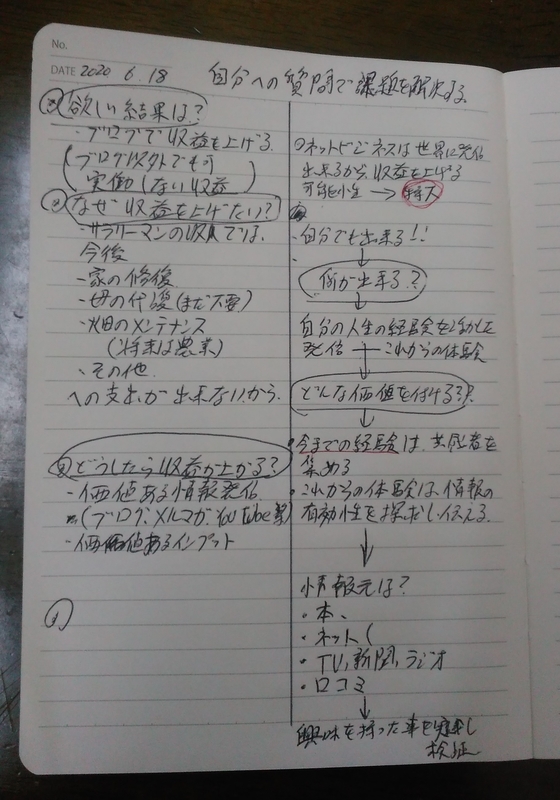 No.
DATE 2020 6.18
自分への質問で課題を解決する
欲しい結果は?
・ブログで収益を上げる
(ブログ以外でも可
実働しない収益)
なぜ収益を上げたい?
・サラリーマンの収入では
今後
・家の修復
・母の代(まだ不要)
・畑のメンテナンス
(将来は農業)
・その他
への支出が出来ないから.
どうしたら収益が上がる?
・価値ある情報発信
(ブログ、メルマガ、YouTube等)
・価値あるインプット
ネットビジネスは世界に発信
出来るから収益を上げる
可能性 → 特大
・自分でも出来る!!
↓
何が出来る?
↓
自分の人生の経験を活かした
発信 + これからの体験
↓
どんな価値を付ける?
↓
・今までの経験は、共感者を
集める
・これからの体験は、情報の
有効性を探求し伝える.
↓
情報元は?
・本、
・ネット(
・TV、新聞、ラジオ
・口コミ
↓
興味を持った事を実し
検証